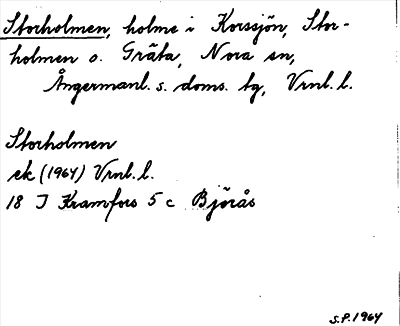 Storholmen, holme i Korssjön, Stor-
holmen o. Gräta, Nora sn,
Ångermanl. s. doms. tg, Vrnl. l.
Storholmen
ek (1964) Vrnl. l.
18 J Kramfors 5 c Björås
S.P. 1964